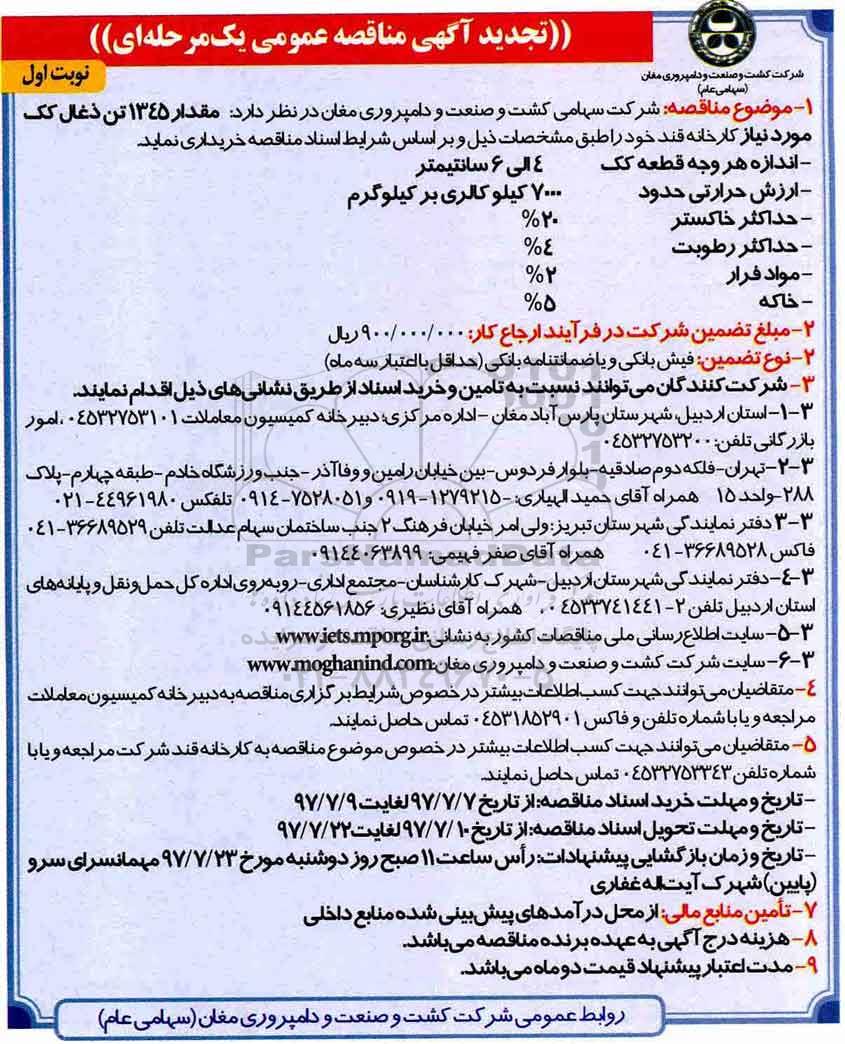 ((تجدید آگهی مناقصه عمومی یک‌مرحله‌ای))
شرکت کشت و صنعت و دامپروری مغان
(سهامی عام)
نوبت اول
۱- موضوع مناقصه: شرکت سهامی کشت و صنعت و دامپروری مغان در نظر دارد: مقدار ۱۳۴۵ تن ذغال کک
مورد نیاز کارخانه قند خود را طبق مشخصات ذیل و بر اساس شرایط اسناد مناقصه خریداری نماید.
- اندازه هر وجه قطعه کک ۴ الی ۶ سانتیمتر
- ارزش حرارتی حدود ۷۰۰۰ کیلو کالری بر کیلوگرم
- حداکثر خاکستر ۲۰%
- حداکثر رطوبت ۴%
- مواد فرار ۲%
- خاکه ۵%
۲- مبلغ تضمین شرکت در فرآیند ارجاع کار: ۹۰۰/۰۰۰/۰۰۰ ریال
۲- نوع تضمین: فیش بانکی و یا ضمانتنامه بانکی (حداقل با اعتبار سه ماه)
۳- شرکت کنندگان می‌توانند نسبت به تامین و خرید اسناد از طریق نشانی‌های ذیل اقدام نمایند.
۳-۱- استان اردبیل، شهرستان پارس آباد مغان - اداره مرکزی؛ دبیرخانه کمیسیون معاملات ۰۴۵۳۲۷۵۳۱۰۱، امور
بازرگانی تلفن: ۰۴۵۳۲۷۵۳۲۰۰
۳-۲- تهران- فلکه دوم صادقیه- بلوار فردوس- بین خیابان رامین و وفا آذر - جنب ورزشگاه خادم - طبقه چهارم- پلاک
۲۸۸- واحد ۱۵ همراه آقای حمید الهیاری: ۱۲۷۹۲۱۵-۰۹۱۹ و ۷۵۲۸۰۵۱-۰۹۱۴ تلفکس ۴۴۹۶۱۹۸۰-۰۲۱
۳-۳ دفتر نمایندگی شهرستان تبریز: ولی امر خیابان فرهنگ ۲ جنب ساختمان سهام عدالت تلفن ۳۶۶۸۹۵۲۹-۰۴۱
فاکس ۳۶۶۸۹۵۲۸-۰۴۱ همراه آقای صفر فهیمی: ۰۹۱۴۴۰۶۳۸۹۹
۳-۴- دفتر نمایندگی شهرستان اردبیل- شهرک کارشناسان- مجتمع اداری- روبه‌روی اداره کل حمل و نقل و پایانه‌های
استان اردبیل تلفن ۲-۰۴۵۳۳۷۴۱۴۴۱، همراه آقای نظیری: ۰۹۱۴۴۵۶۱۸۵۶
۳-۵- سایت اطلاع رسانی ملی مناقصات کشور به نشانی: www.iets.mporg.ir
۳-۶- سایت شرکت کشت و صنعت و دامپروری مغان: www.moghanind.com
۴- متقاضیان می‌توانند جهت کسب اطلاعات بیشتر در خصوص شرایط برگزاری مناقصه به دبیرخانه کمیسیون معاملات
مراجعه و یا با شماره تلفن و فاکس ۰۴۵۳۱۸۵۲۹۰۱ تماس حاصل نمایند.
۵- متقاضیان می‌توانند جهت کسب اطلاعات بیشتر در خصوص موضوع مناقصه به کارخانه قند شرکت مراجعه و یا با
شماره تلفن ۰۴۵۳۲۷۵۳۳۴۳ تماس حاصل نمایند.
- تاریخ و مهلت خرید اسناد مناقصه: از تاریخ ۹۷/۷/۷ لغایت ۹۷/۷/۹
- تاریخ و مهلت تحویل اسناد مناقصه: از تاریخ ۹۷/۷/۱۰ لغایت ۹۷/۷/۲۲
- تاریخ و زمان بازگشایی پیشنهادات: رأس ساعت ۱۱ صبح روز دوشنبه مورخ ۹۷/۷/۲۳ مهمانسرای سرو
(پایین) شهرک آیت‌اله غفاری
۷- تأمین منابع مالی: از محل درآمدهای پیش‌بینی شده منابع داخلی
۸- هزینه درج آگهی به عهده برنده مناقصه می‌باشد.
۹- مدت اعتبار پیشنهاد قیمت دو ماه می‌باشد.
روابط عمومی شرکت کشت و صنعت و دامپروری مغان (سهامی عام)
ParsNamadData
۰۲۱-۸۸۳۴۹۶۷۰-۵